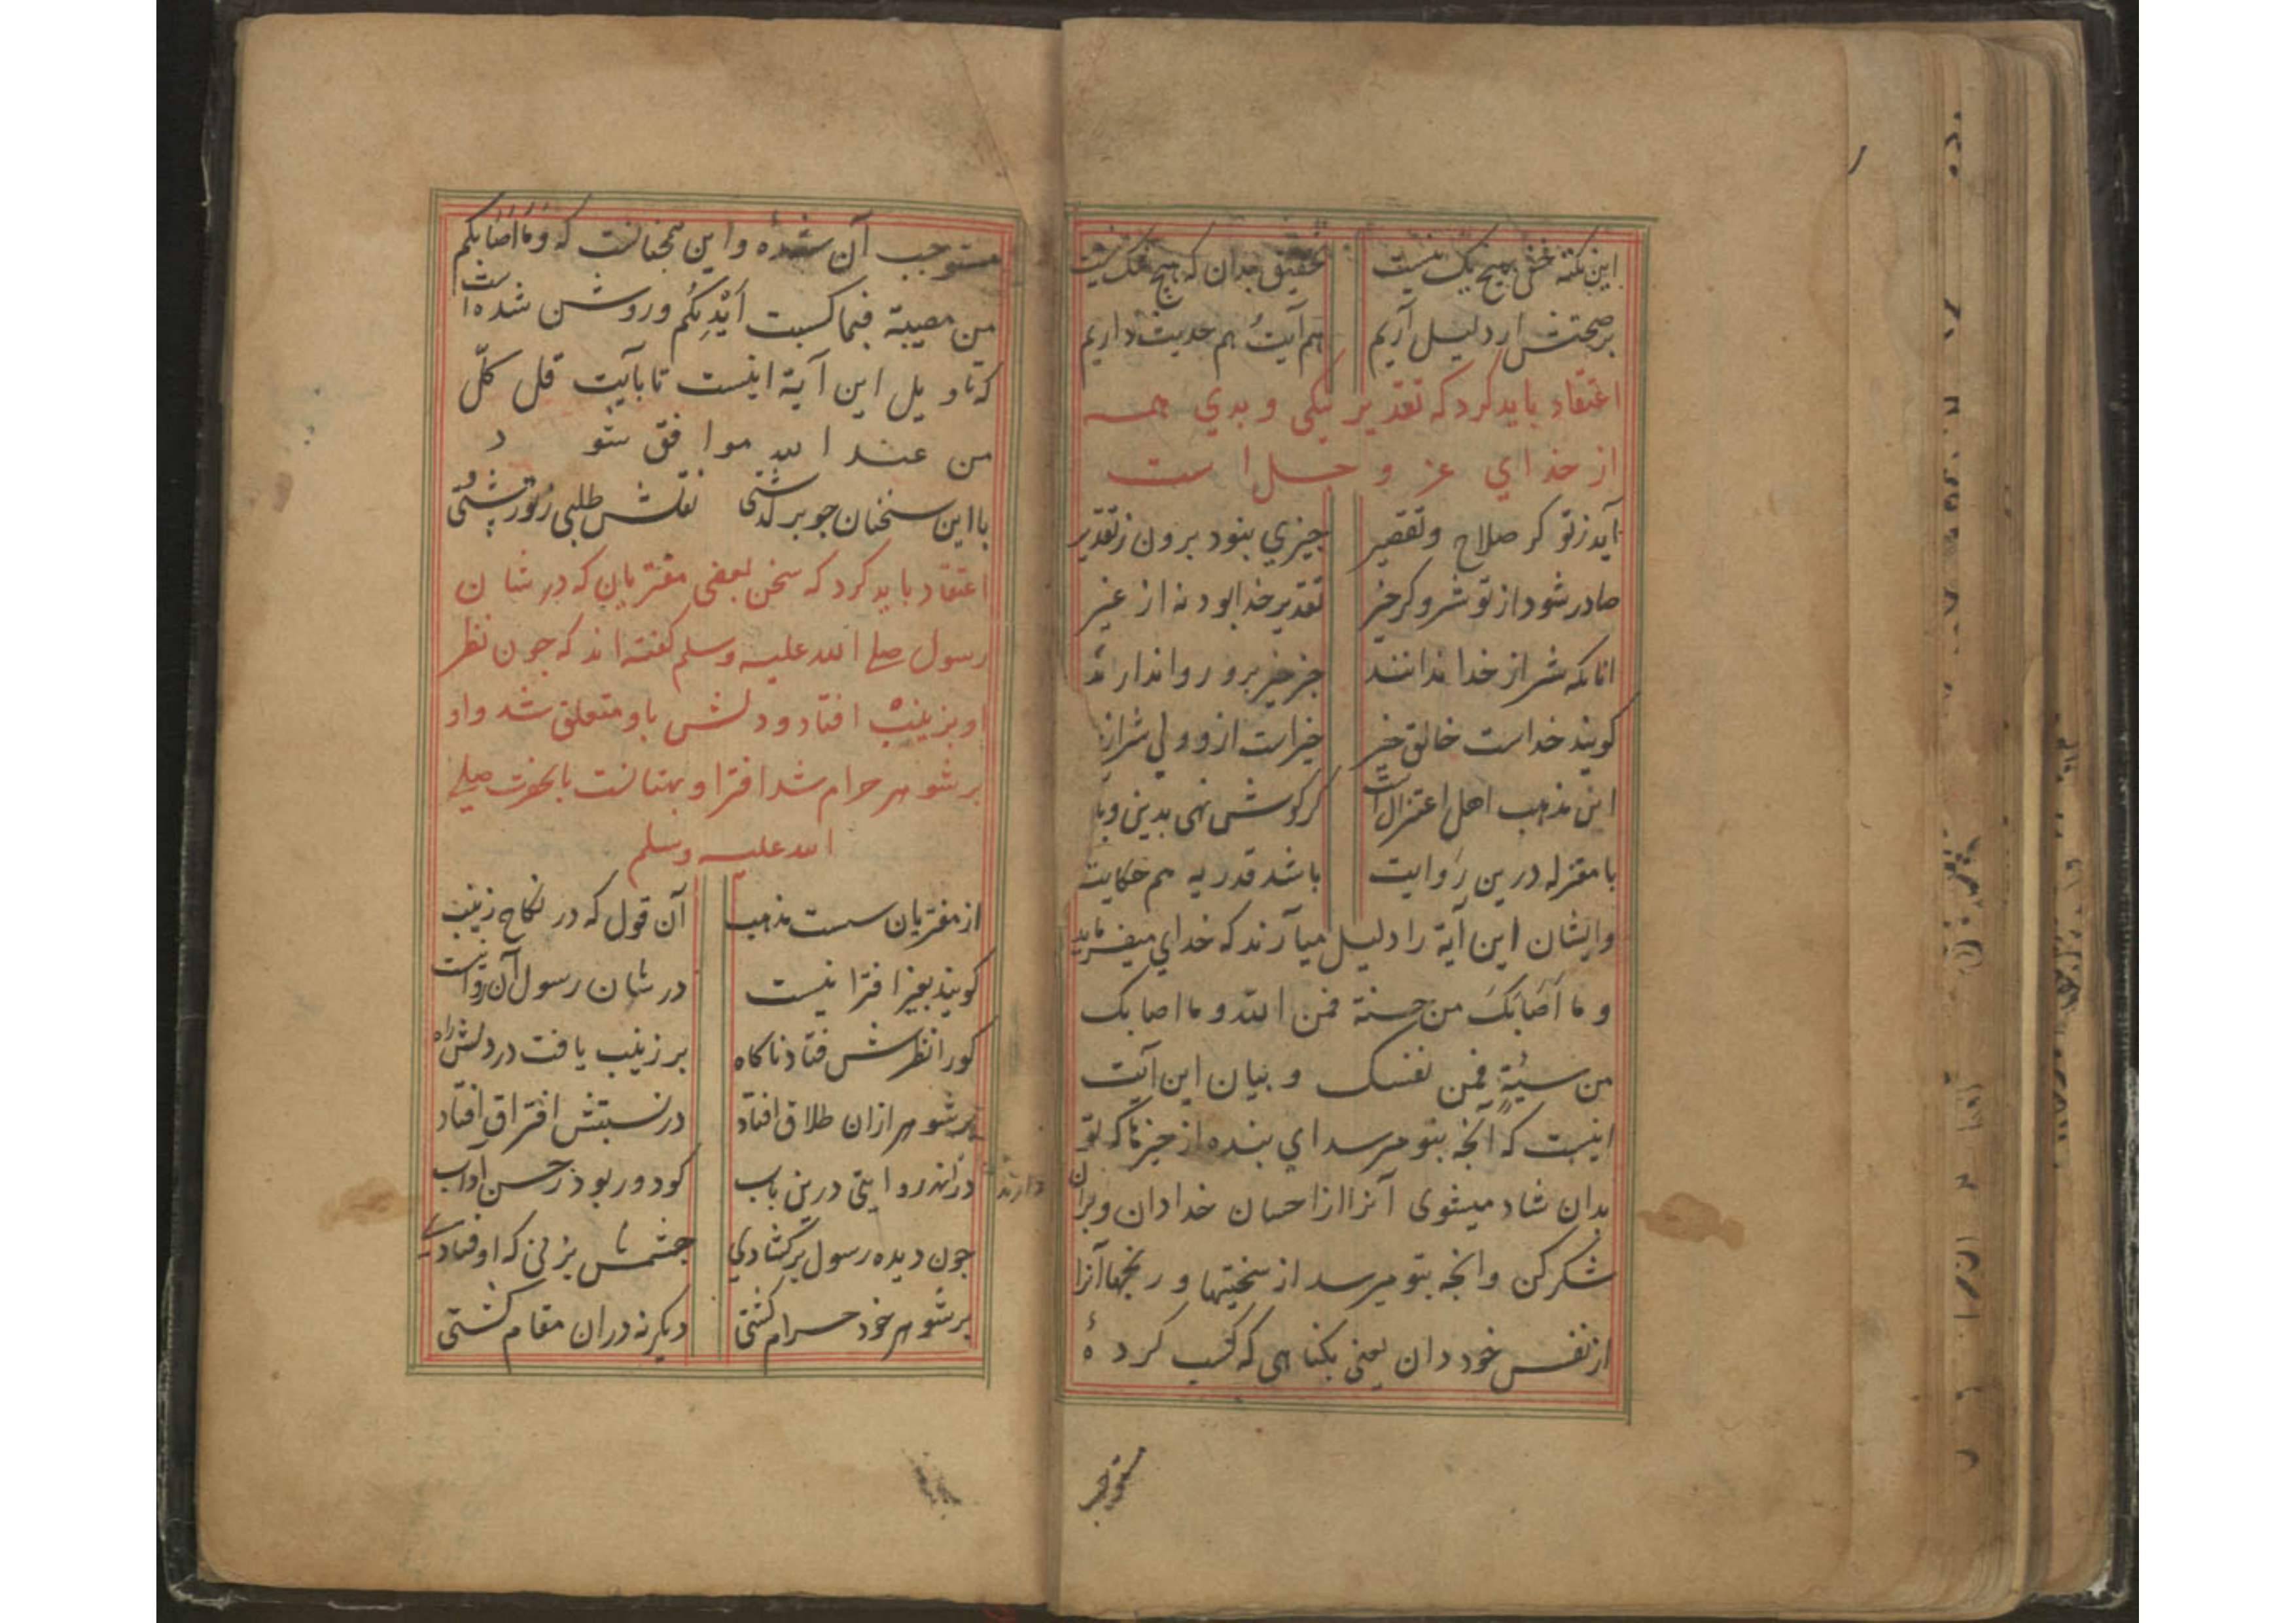 این نکته خفی بهیچ یک نیست تحقیق بدان که هیچ شک نیست
بر صحتش ار دلیل آریم هم آیت و هم حدیث داریم
اعتقاد باید کرد که تقدیر نیکی و بدی همه
از خدای عز و جل است
آید ز تو کر صلاح و تقصیر چیزی بنود برون ز تقدیر
صادر شود از تو شر و کر خیر تقدیر خدا بود نه از غیر
آنانکه شر از خدا ندانند جز خیر برو روا ندارند
کویند خداست خالق خیر خیر است ازو ولی شر از
این مذهب اهل اعتزال است کر کوش نهی بدین وبا
با معتزله درین روایت باشد قدریه هم حکایت
وایشان این آیة را دلیل میآرند که خدای میفرماید
و ما أَصَابَكَ من حسنة فمن الله و ما اصابک
من سیئةٍ فمن نفسک و بیان این آیت
اینست که آنچه بتو میرسد ای بنده از چیزها که تو
بدان شاد میشوی آنرا از احسان خدا دان و بران
شکر کن و آنچه بتو میرسد از سختیها و رنجها آنرا
از نفس خود دان یعنی بکناهی که کسب کردهٔ
مستوجب
مستوجب آن شدهٔ و این همچنانست که وما اصابکم
من مصیبة فبما کسبت أَیْدِیکُم و روشن شده است
که تاویل این آیة اینست تا بآیت قل کلّ
من عند الله موافق شود
با این سخنان چو بر کذشتی نقلش طلبی ز نور پشتی
اعتقاد باید کرد که سخن بعضی مفتریان که در شان
رسول صلی الله علیه وسلم کفته اند که چون نظر
او بزینب افتاد و دلش باو متعلق شد و او
بر شوهر حرام شد افترا و بهتانست بانحضرت صلی
الله علیه وسلم
از مفتریان سست مذهب آن قول که در نکاح زینب
کویند بغیر افترا نیست در شان رسول آن روا نیست
کورا نظرش فتاد ناکاه بر زینب یافت در دلش راه
بر شوهر ازان طلاق افتاد در نسبتش افتراق افتاد
دارند روایتی درین باب کو دور بود ز حسن آداب
دارند
چون دیده رسول بر کشادی چشمش بزنی که اوفتادی
بر شوهر خود حرام کشتی دیکر نه دران مقام کشتی